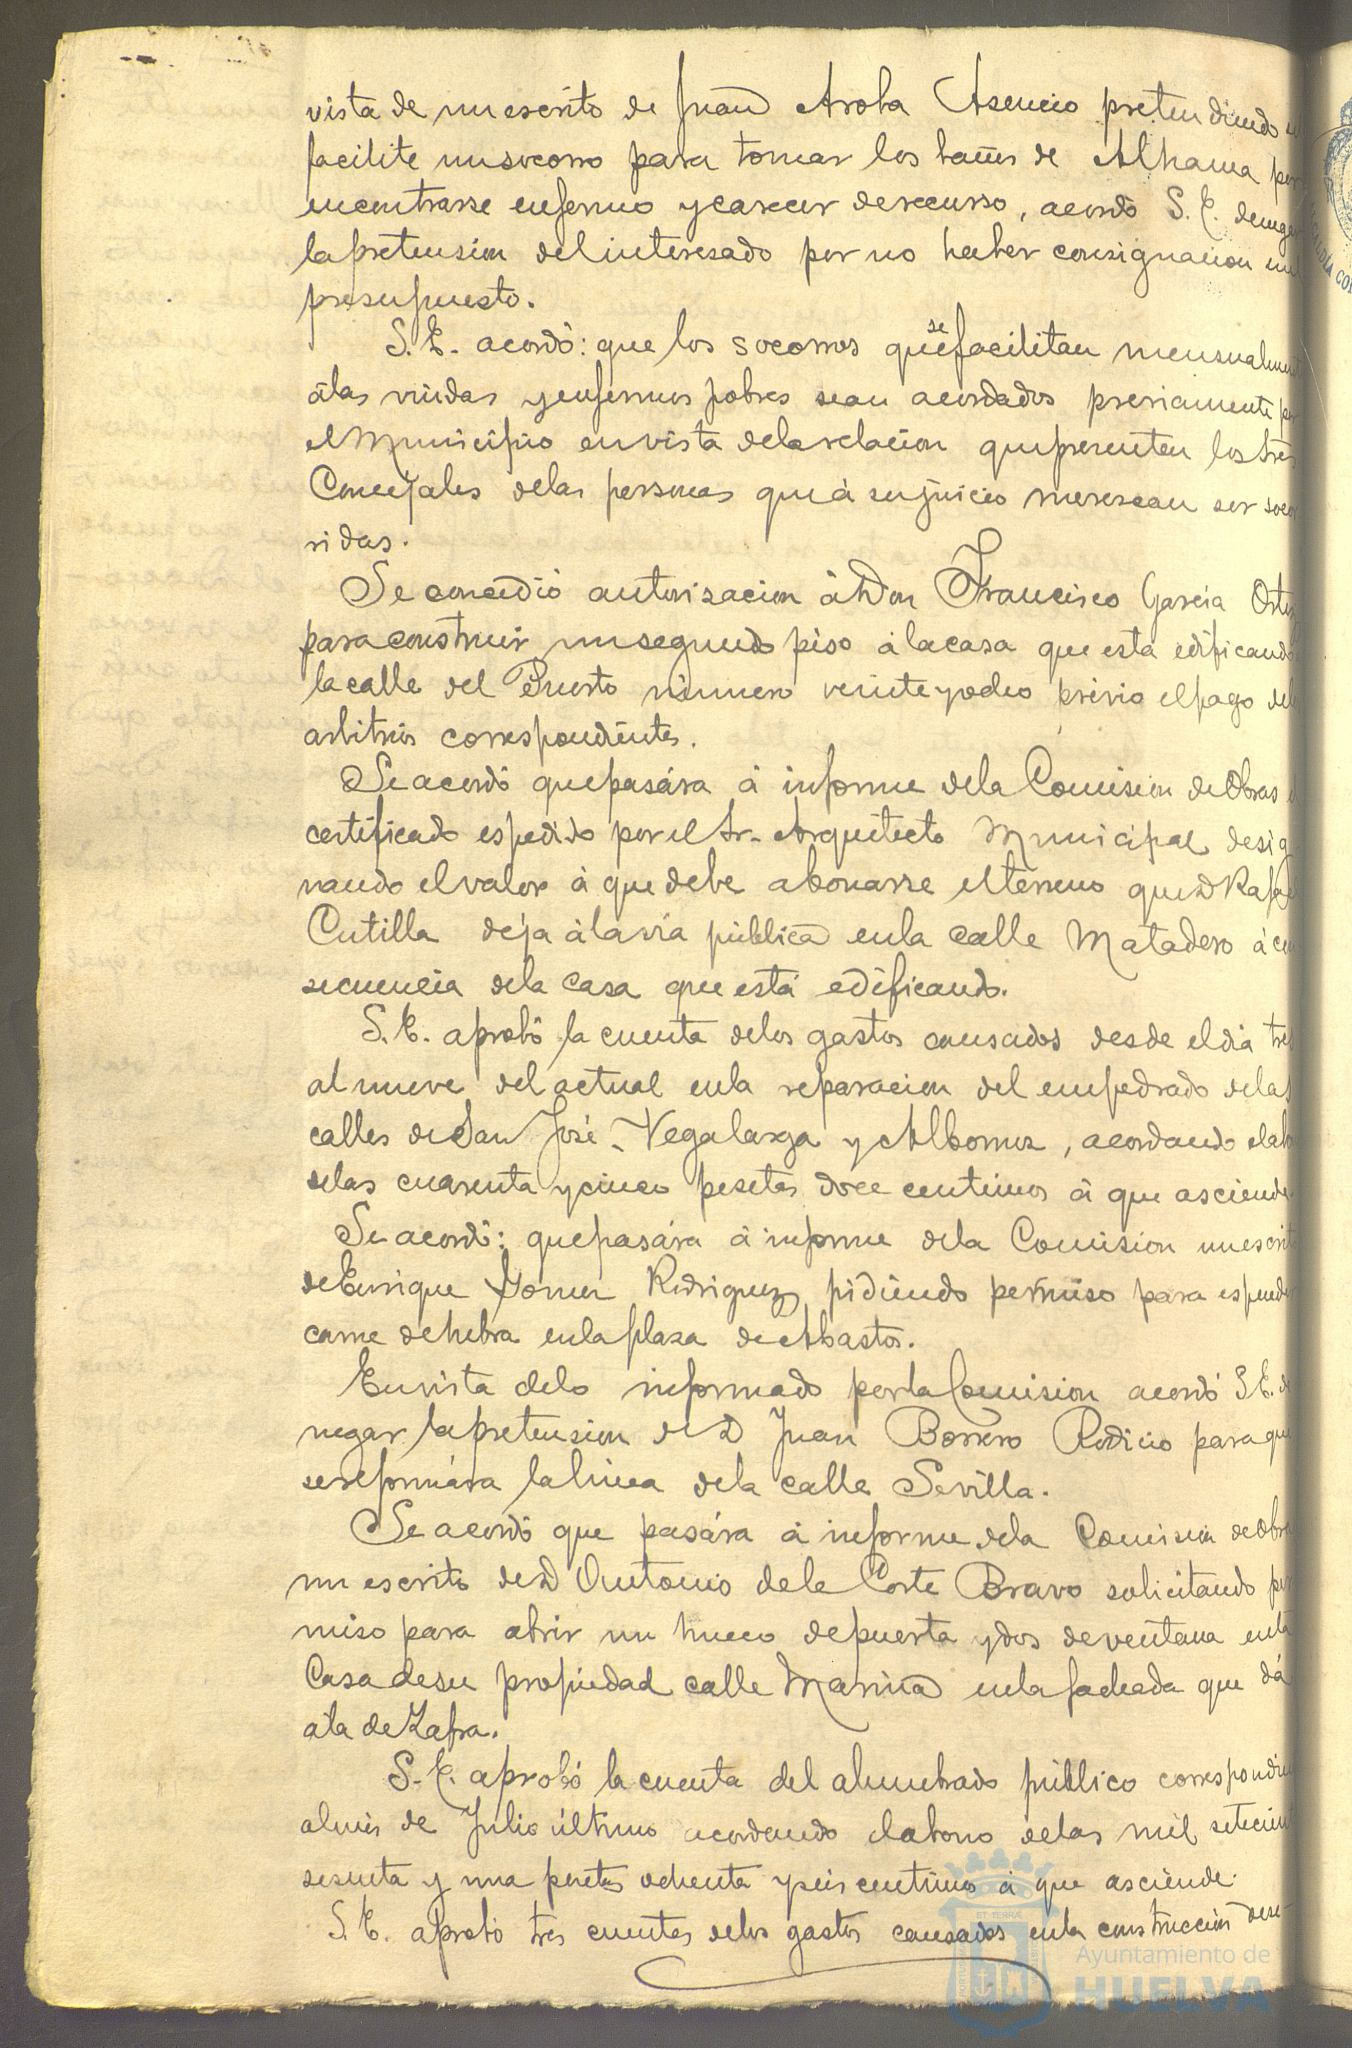 vista de un escrito de Juan Arola Asencio pretendiendo se
facilite un socorro para tomar los baños de Alhama por
encontrarse enfermo y carecer de recurso, acordó S. E. denegar
la pretension del interesado por no haber consignacion en
presupuesto.
S. E. acordó: que los socorros que se facilitan mensualment
á las viudas y enfermos pobres sean acordados previamente por
el Municipio en vista de la relacion que presenten los tres
Concejales de las personas que á su juicio merescan ser socor
ridas.
Se concedió autorisacion á Don Francisco Garcia Ortiz
para construir un segundo piso á la casa que está edificando
la calle del Puerto número veinte y ocho prévio el pago del
arbitrios correspondientes.
Se acordó que pasára á informe de la Comision de Obras e
certificado espedido por el Sr. Arquitecto Municipal desig
nando el valor á que debe abonarse el terreno que D Rafael
Cutilla deja á la via pública en la calle Matadero á con
secuencia de la casa que está edificando.
S. E. aprobó la cuenta de los gastos causados desde el dia tres
al nueve del actual en la reparacion del empedrado de las
calles de San José, Vegalarga y Albornoz, acordando el abo
de las cuarenta y cinco pesetas doce centimos á que asciende.
Se acordó: que pasára á informe de la Comision un escrito
de Enrique Gomez Rodriguez pidiendo permiso para espender
carne de hebra en la plasa de Abastos.
En vista de lo informado por la Comision acordó S. E. de
negar la pretension de D Juan Borrero Rodicio para que
se reformára la linea de la calle Sevilla.
Se acordó que pasára á informe de la Comision de Obra
un escrito de D Antonio de la Corte Bravo solicitando per
miso para abrir un hueco de puerta y dos de ventana en la
Casa de su propiedad calle Marina en la fachada que dá
a la de Zafra.
S. E. aprobó la cuenta del alumbrado público correspondien
al mes de Julio último acordando el abono de las mil setecien
sesenta y una pesetas ochenta y seis centimos á que asciende.
S. E. aprobó tres cuentas de los gastos causados en la construccion de se-
Ayuntamiento de
HUELVA